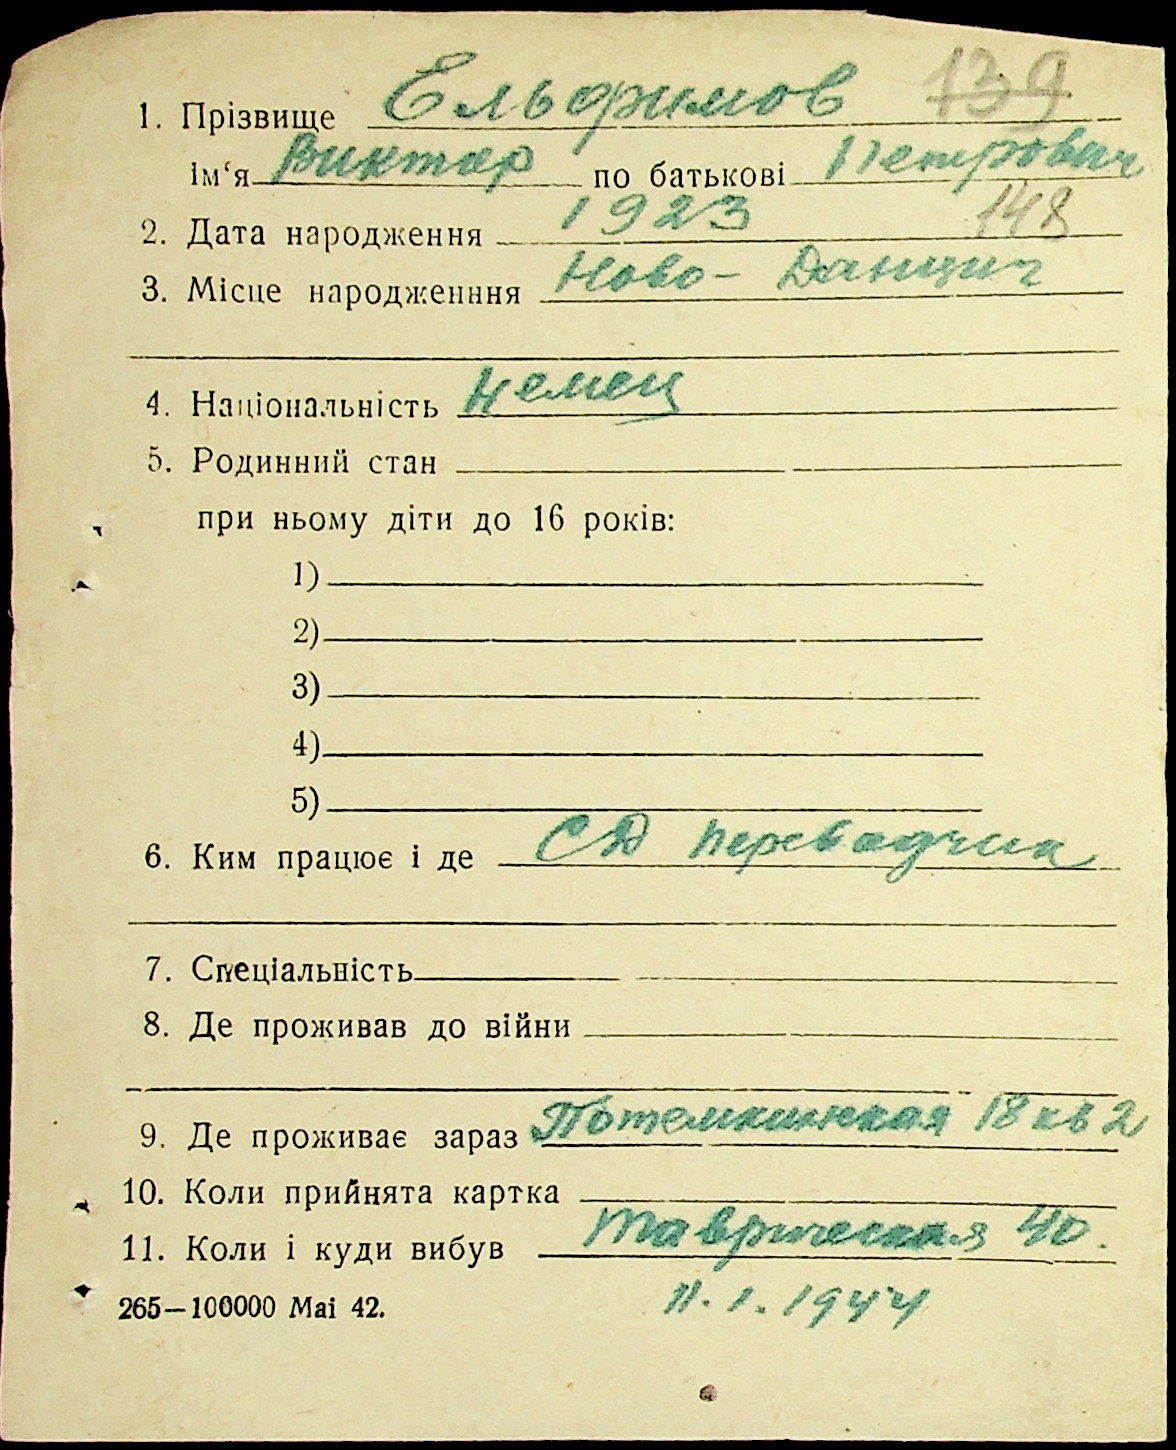 139
1. Прізвище Ельфимов
ім‘я Виктор по батькові Петрович
2. Дата народження 1923 148
3. Місце народженння Ново- Данциг
4. Національність Немец
5. Родинний стан
при ньому діти до 16 років:
1)
2)
3)
4)
5)
6. Ким працює і де СД переводчик
7. Спеціальність
8. Де проживав до війни
9. Де проживає зараз Потемкинская 18 кв 2
10. Коли прийнята картка
11. Коли і куди вибув Таврическая 40.
265—100000 Mai 42. 11.1.1944